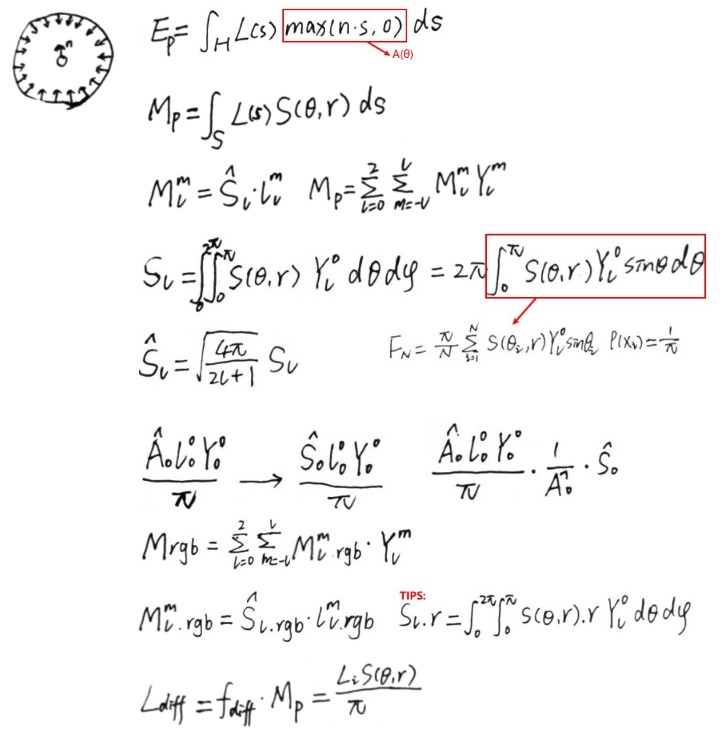 n
E_p = ∫_H L(s) max(n·s, 0) ds
A(θ)
M_p = ∫_S L(s) S(θ,r) ds
M_l^m = Ŝ_l · l_l^m   M_p = Σ_{l=0}^{2} Σ_{m=-l}^{l} M_l^m Y_l^m
S_l = ∫_0^{2π} ∫_0^π S(θ,r) Y_l^0 dθ dφ = 2π ∫_0^π S(θ,r) Y_l^0 sinθ dθ
Ŝ_l = √(4π/(2l+1)) S_l   F_N = π/N Σ_{i=1}^{N} S(θ_i,r) Y_l^0 sinθ_i   P(x_i) = 1/π
Â_0 l_0^0 Y_0^0 / π → Ŝ_0 l_0^0 Y_0^0 / π   Â_0 l_0^0 Y_0^0 / π · 1/Â_0 · Ŝ_0
M_rgb = Σ_{l=0}^{2} Σ_{m=-l}^{l} M_l^m.rgb · Y_l^m
TIPS:
M_l^m.rgb = Ŝ_l.rgb · l_l^m.rgb   S_l.r = ∫_0^{2π} ∫_0^π S(θ,r).r Y_l^0 dθ dφ
L_diff = f_diff · M_p = L_i S(θ,r) / π